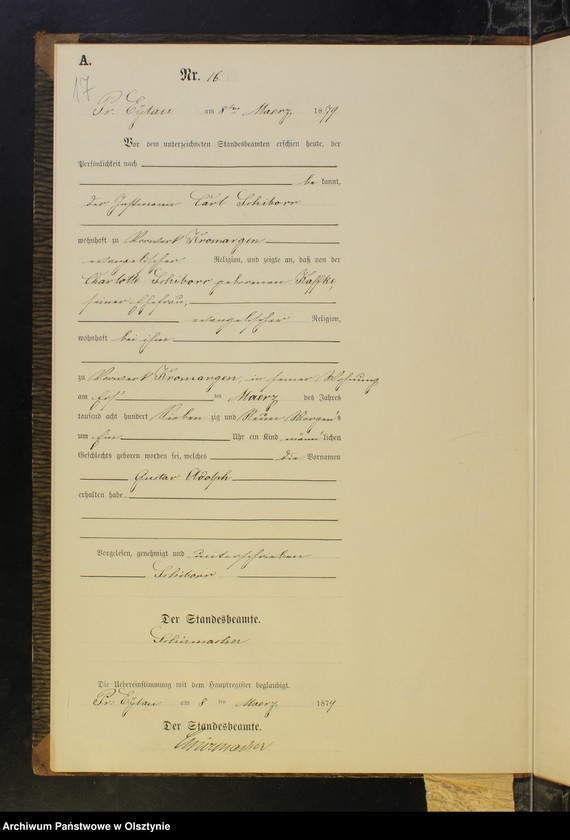 A.
17
Nr. 16
Pr. Eylau am 8ten Maerz 1879
Vor dem unterzeichneten Standesbeamten erschien heute, der
Persönlichkeit nach
be kannt,
der Instmann Carl Schiborr
wohnhaft zu Vorwerk Kromargen
evangelischer Religion, und zeigte an, daß von der
Charlotte Schiborr geborenen
seiner Ehefrau,
evangelischer Religion,
wohnhaft bei ihm
zu Vorwerk Kromargen, in seiner Wohnung
am ten Maerz des Jahres
tausend acht hundert Sieben zig und Neun Morgen's
um Uhr ein Kind männ lichen
Geschlechts geboren worden sei, welches die Vornamen
Gustav Adolph
erhalten habe.
Vorgelesen, genehmigt und unterschrieben
Schiborr
Der Standesbeamte.
Schirmacher
Die Uebereinstimmung mit dem Hauptregister beglaubigt.
Pr. Eylau am 8 ten Maerz 1879
Der Standesbeamte.
Schirmacher
Archiwum Państwowe w Olsztynie